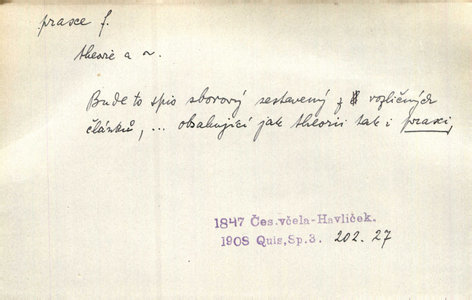 praxe f.
theorie a ~.
Bude to spis sborový sestavený z rozličných
článků, ... obsahující jak theorii tak i praxi,
1847 Čes.včela-Havlíček.
1908 Quis,Sp.3. 202.27